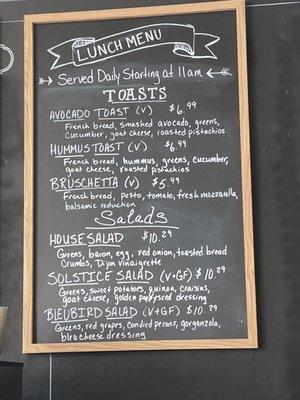 LUNCH MENU
Served Daily Starting at 11am
TOASTS
AVOCADO TOAST (V) $6.99
French bread, smashed avocado, greens,
cucumber, goat cheese, roasted pistachios.
HUMMUS TOAST (V) $6.99
French bread, hummus, greens, cucumber,
goat cheese, roasted pistachios
BRUSCHETTA (V) $5.99
French bread, pesto, tomato, fresh mozzarella,
balsamic reduction
Salads
HOUSE SALAD $10.29
Greens, bacon, egg, red onion, toasted bread
crumbs, Dijon vinaigrette
SOLSTICE SALAD (V+GF) $10.29
Greens, sweet potatoes, quinoa, craisins,
goat cheese, golden poppyseed dressing
BLEUBIRD SALAD (V+GF) $10.29
Greens, red grapes, candied pecans, gorganzola,
bleu cheese dressing